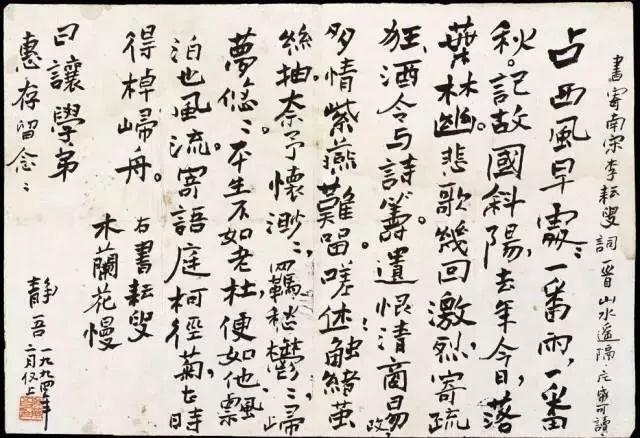 書寄南宋李耘叟詞一首山水遥隔可讀
占西風早處、一番雨,一番
秋。記故國斜陽,去年今日,落
葉林幽。悲歌幾回激烈,寄疏
狂,酒令与詩籌。遺恨清商易改
多情紫燕難留。嗟休觸緒繭
絲抽。奈予懷渺〻,羈愁鬱〻,歸
夢悠〻。平生不如老杜,便如他飄
泊也風流。寄語庭柯徑菊,甚時
得棹歸舟。 右書耘叟
木蘭花慢
曰讓學弟
惠存留念〻
靜吾 一九九四年
二月 上